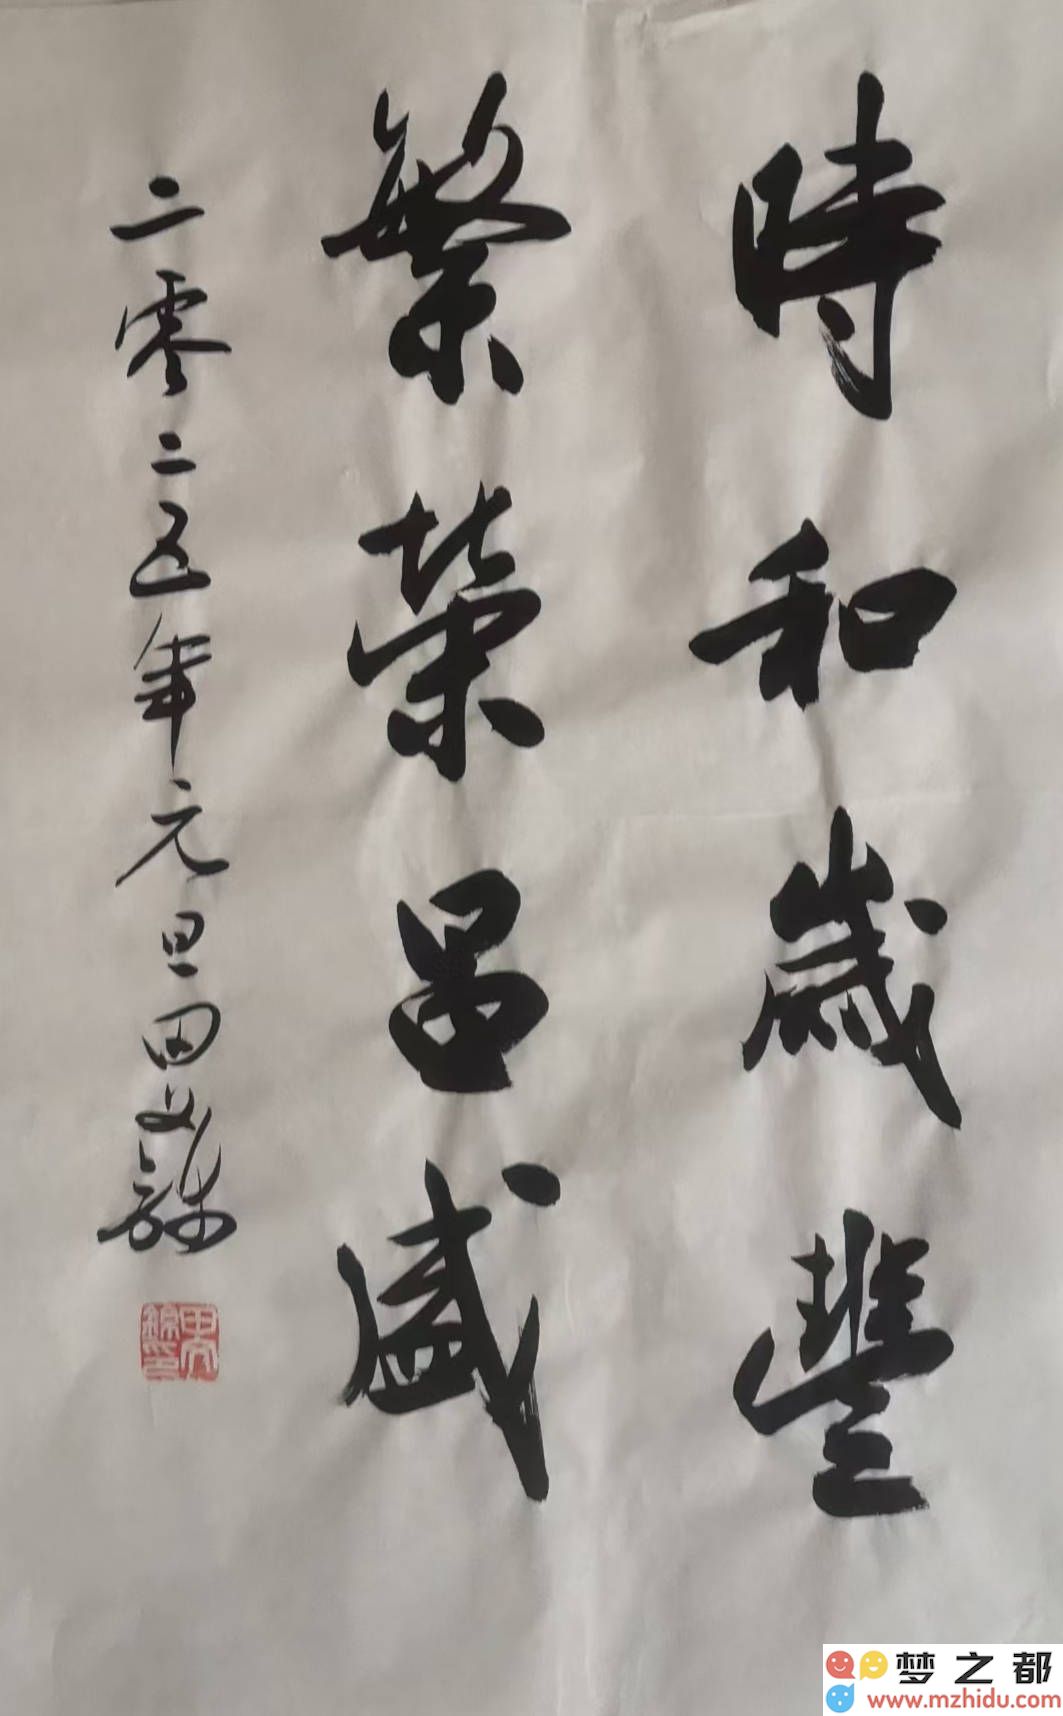 時和歲豐
繁榮昌盛
二零二五年元旦田文
梦之都
www.mzhidu.com